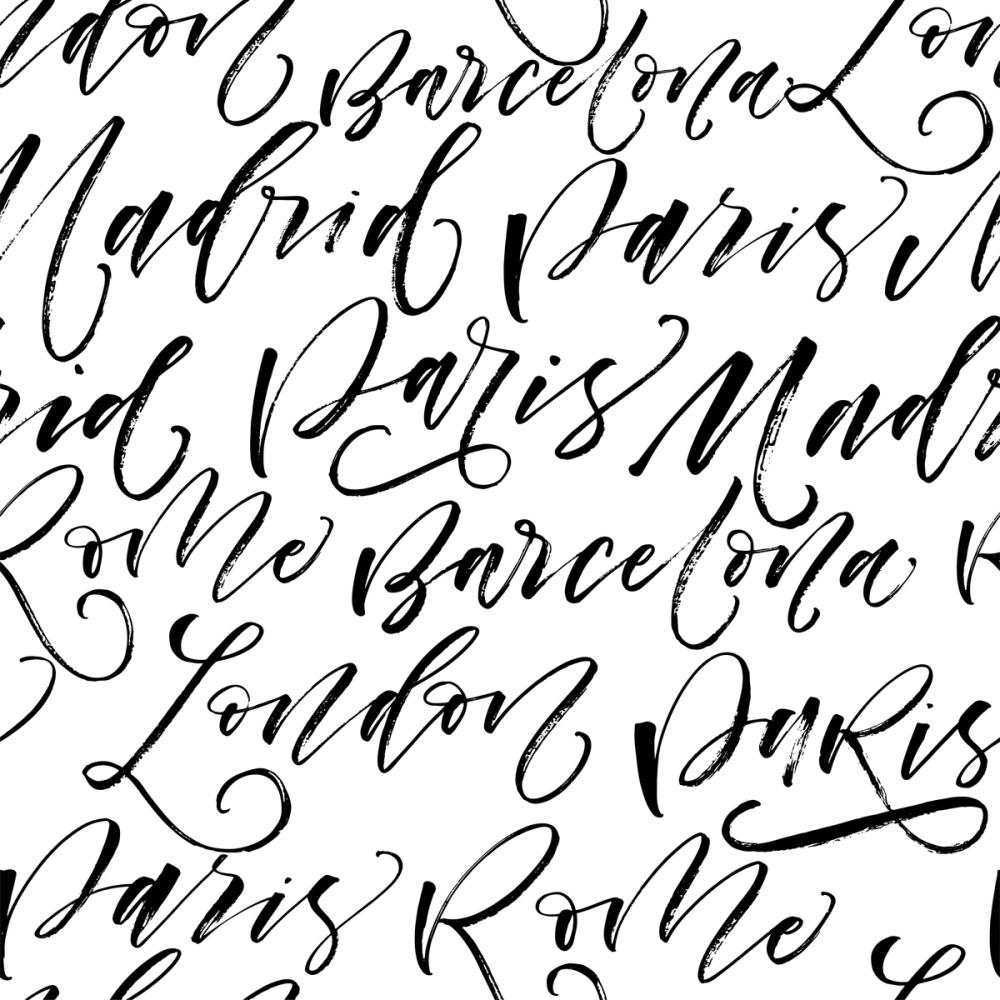 ndon Barcelona Lon
Madrid Paris M
rid Paris Madr
Rome Barcelona R
London Paris
Paris Rome L